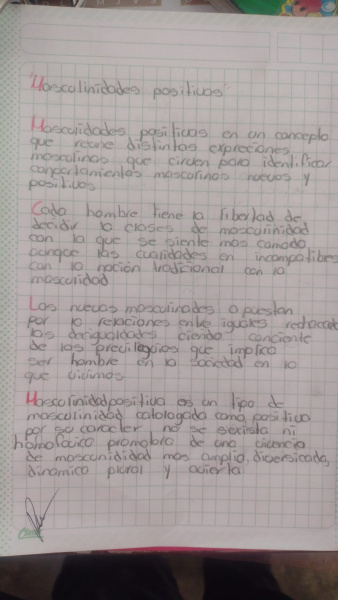 "Mascolinidades positivas"
Mascujidades positivas en un concepto
que reune distintas expreciones
mascolinas que cirven para identificar
conportamientos mascorinos nuevos y
positivos
Cada hombre tiene la libertad de
decidir la closes de mascuinidad
con la que se siente mas comodo
aunque las cuaridades en incompatibles
con la noción tradicional con la
mascuridad
Las nuevas mascuinades a puestan
por la relaciones entre iguales
las derigualdades ciendo conciente
de las previlegios que implica
ser hombre en la sociedad en la
que vivimos
Mascolinidad positiva es un tipo de
mascolinidad catalogada como positiva
por so caracter no se sexista ni
promobra de una
de mas amplia, diversicada,
dinamica plural y avierta